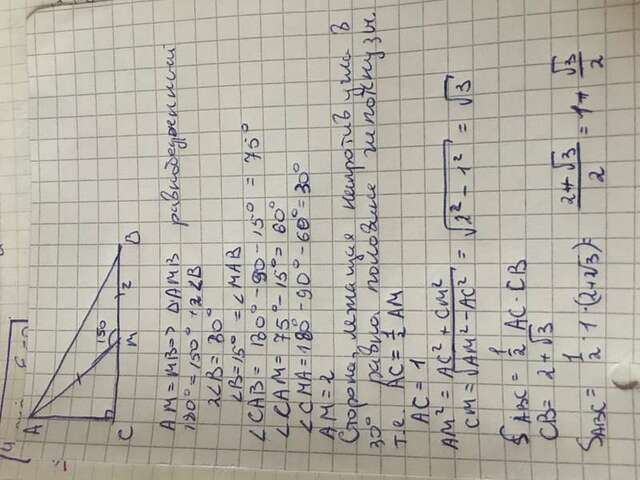 A
150
C
M
2
B
AM = MB => ΔAMB равнобедренный
180° = 150° + 2∠B
2∠B = 30°
∠B = 15° = ∠MAB
∠CAB = 180° - 90 - 15° = 75°
∠CAM = 75° - 15° = 60°
∠CMA = 180° - 90° - 60° = 30°
AM = 2
Сторона, лежащая напротив угла в
30° равна половине гипотенузы.
т.е. AC = 1/2 AM
AC = 1
AM² = AC² + CM²
CM = √(AM² - AC²) = √(2² - 1²) = √3
S ABC = 1/2 AC · CB
CB = 2 + √3
S ABC = 1/2 · 1 · (2+√3) = (2+√3)/2 = 1 + √3/2